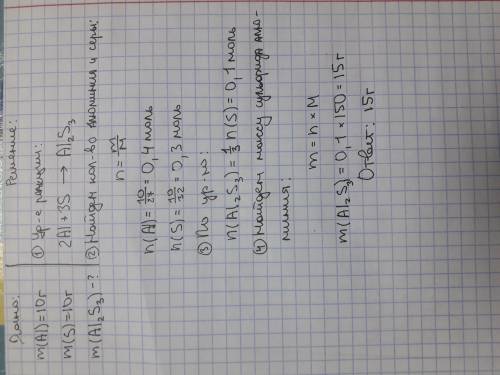 Дано:
m(Al)=10г
m(S)=10г
m(Al₂S₃)-?
Решение:
① Ур-е реакции:
2Al+3S → Al₂S₃
② Найдем кол-во алюминия и серы:
n=m/M
n(Al)=10/27=0,4 моль
n(S)=10/32=0,3 моль
③ По ур-ю:
n(Al₂S₃)=1/3 n(S)=0,1 моль
④ Найдем массу сульфида алю-
миния:
m=n×M
m(Al₂S₃)=0,1×150=15г
Ответ: 15г